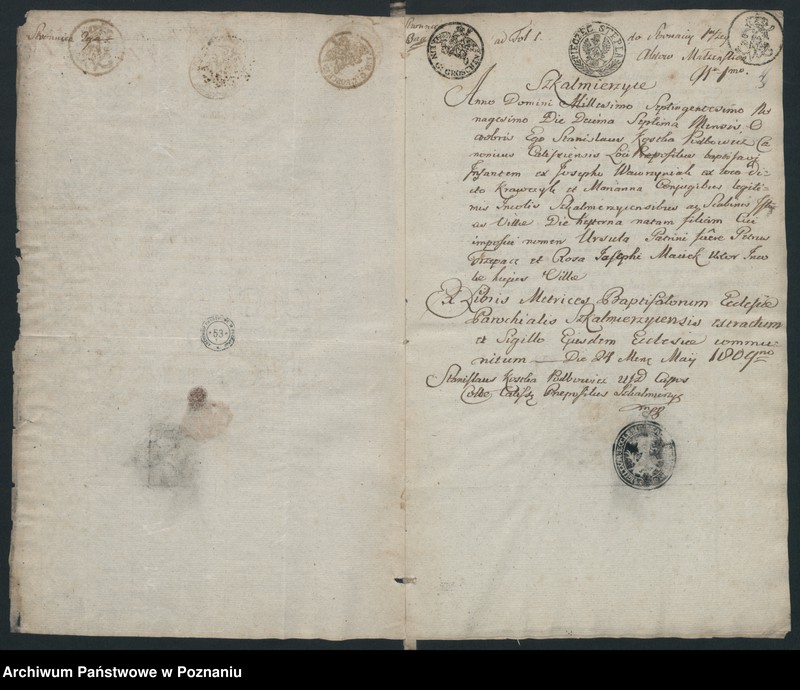 ad Fol 1.
do Stronicy
Szkalmierzyce
Anno Domini Millesimo Septingentesimo No-
nagesimo Die Decima Septima Mensis O-
ctobris Ego Stanislaus Koszba Podbowicz Ca-
nonicus Calisiensis Loci Praepositus baptisavi
Infantem ex Josepho Wawrzyniak ex loco di-
cto Krawczyk et Marianna Conjugibus legiti-
mis Incolis Szkalmerzycensibus
Villae Die hesterna natam filiam Cui
imposui nomen Ursula Patrini fuere Petrus
et Rosa Josephi Maciek Uxor Inco
lae hujus Villae
Ex Libris Metrices Baptisatorum Ecclesiae
Parochialis Szkalmierzycensis extractum
et Sigillo Ejusdem Ecclesiae commu-
nitum Die 24 Mens Maij 1809
Stanislaus Koszba Podbowicz
Praepositus Szkalmierzyc
mpp
53
Archiwum Państwowe w Poznaniu